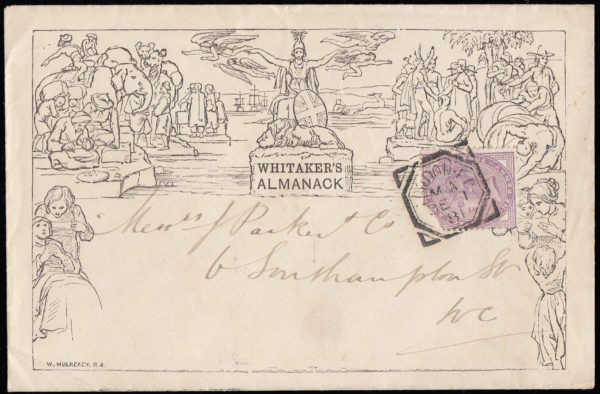 WHITAKER'S
ALMANACK
LONDON·E.C
MA
81
Messrs J Parker & Co
6 Southampton St
WC
W. MULREADY, R.A.